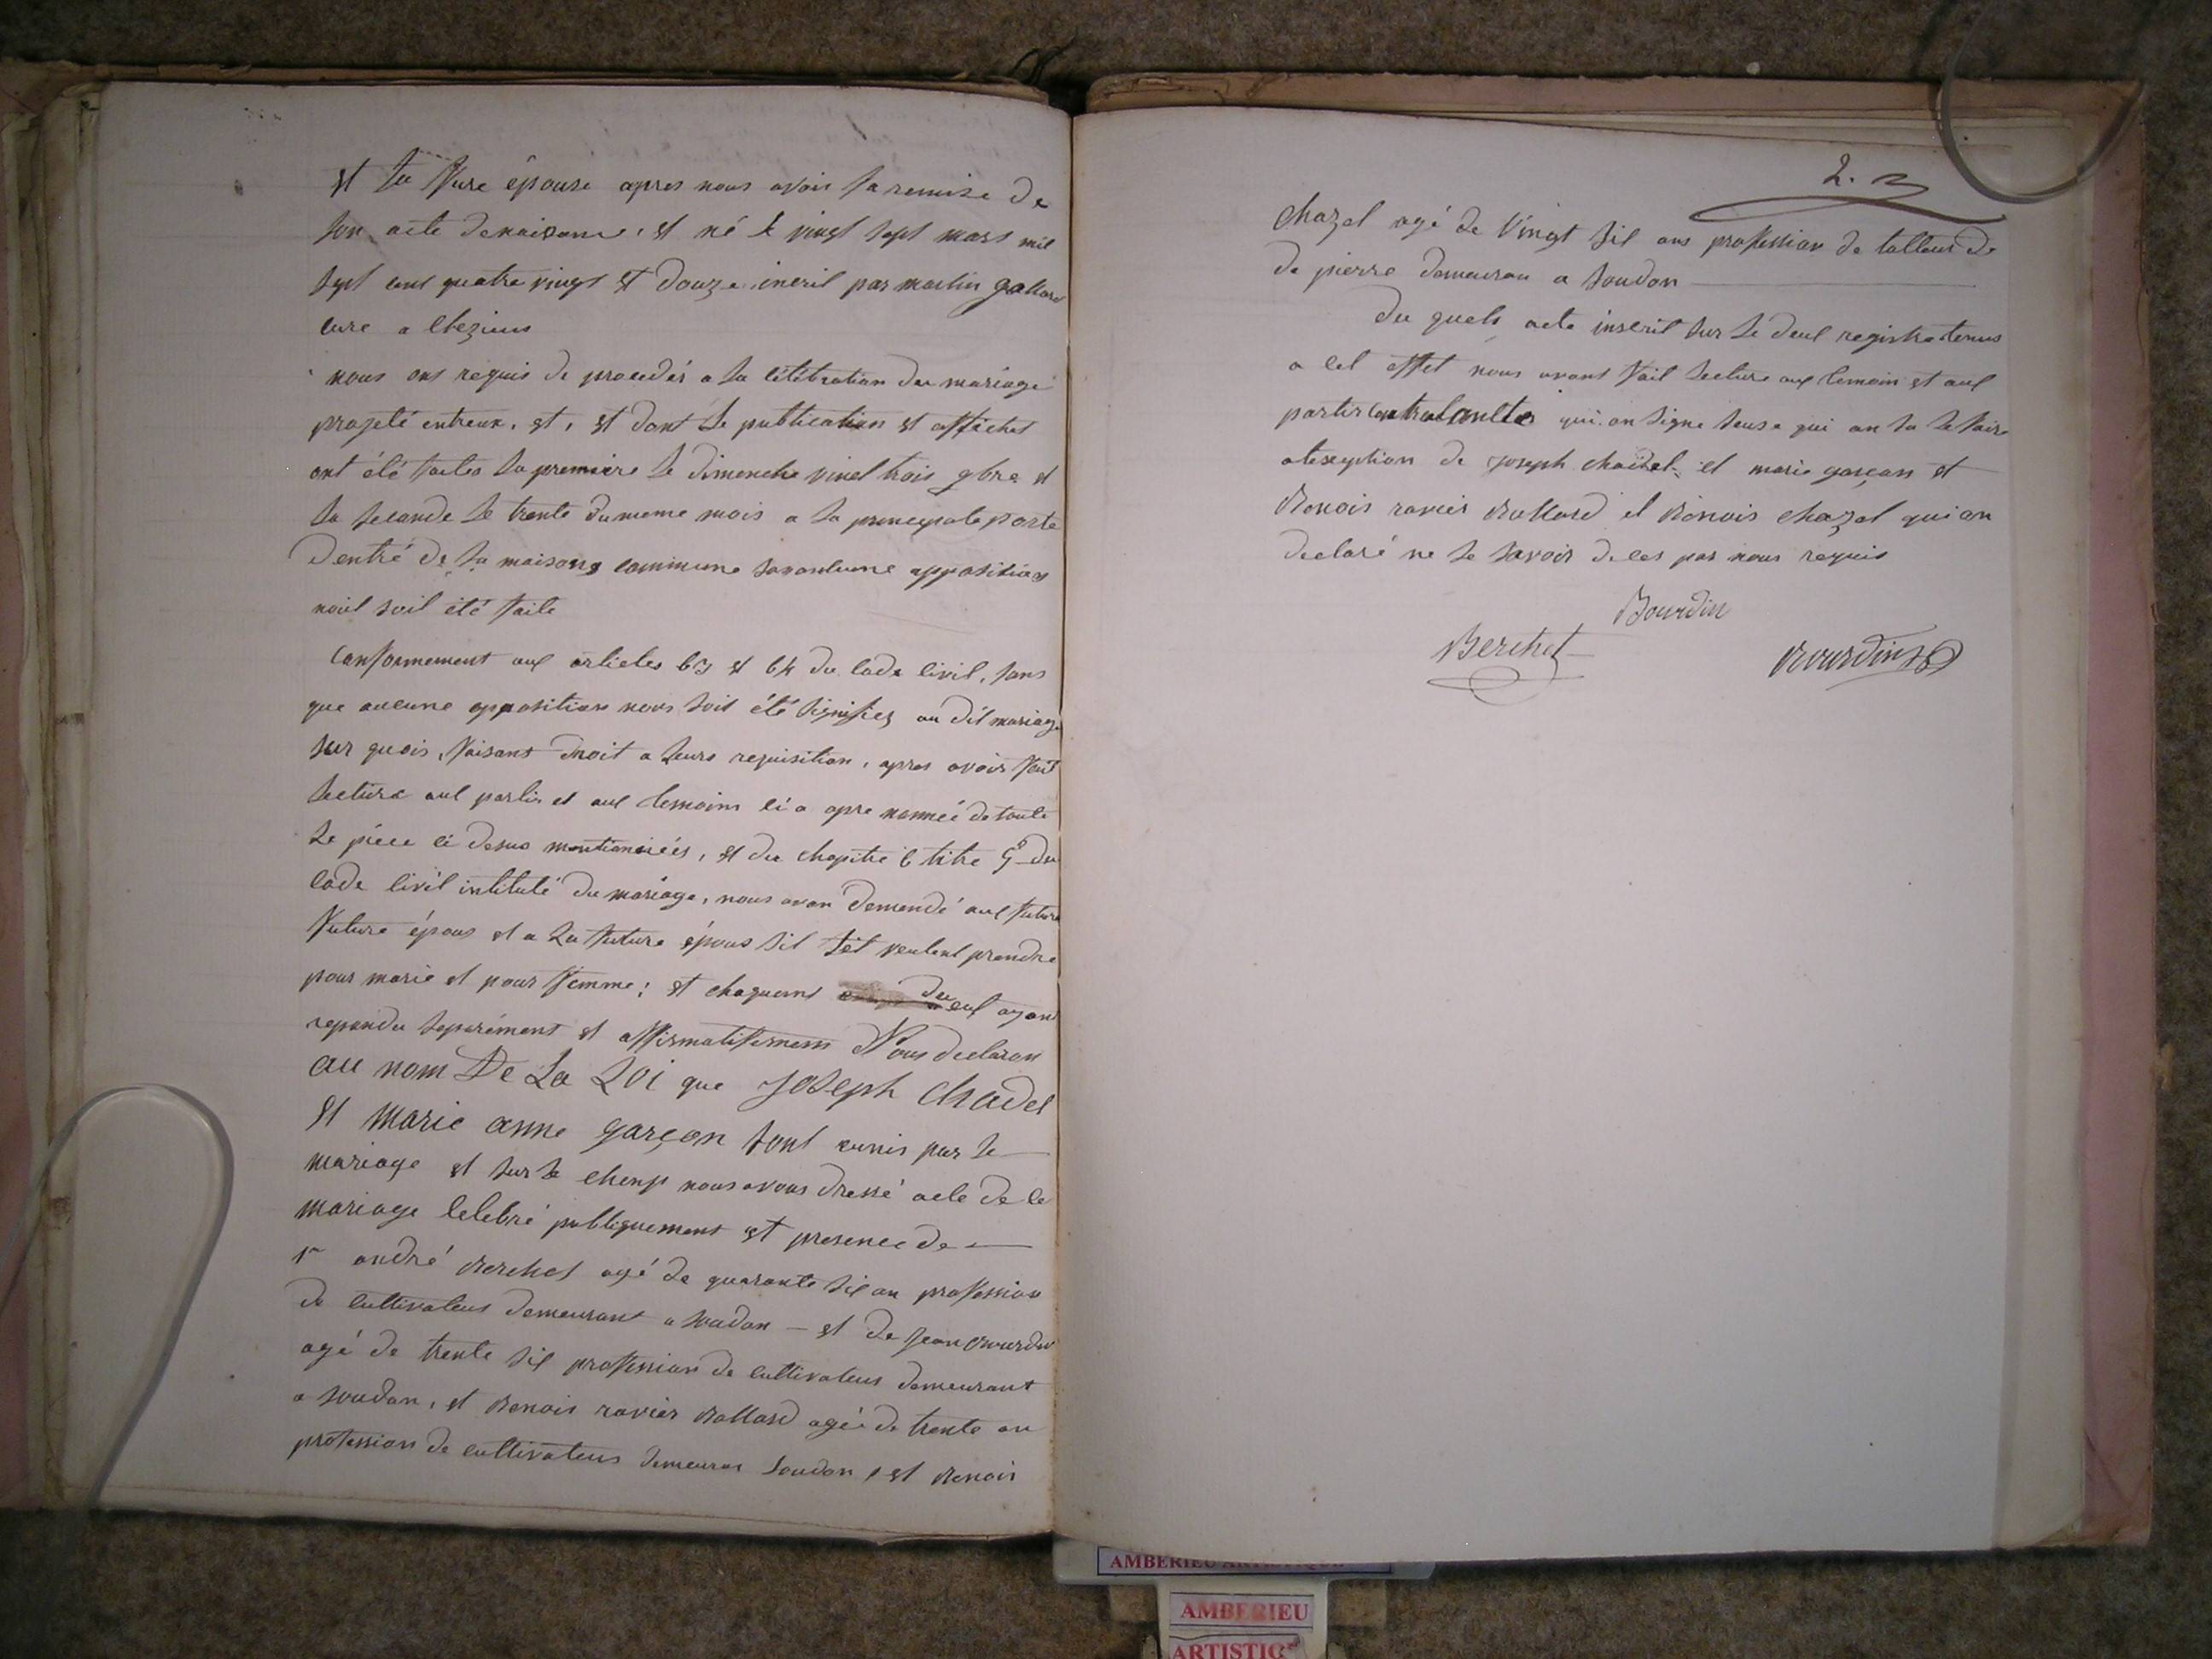 et la fure épouse apres nous avoir la remise de
son acte de naisance, et né le vingt sept mars mil
sept cens quatre vingt et douze inscrit par martin gallard
cure a
nous ons requis de proceder a la célébration du mariage
projeté entreux, et, et dont le publication et affiches
ont été faites la premiere le dimenche vinct trois 9bre et
la seconde le trente du meme mois a la principale porte
d'entré de la maisons commune apposition
soit été faite
conformement aux articles 63 et 64 du code civil, sans
que aucune opposition nous soit été signifies au dit mariage
sur quois, faisant droit a leurs requisition, apres avoir fait
lecture aux partis et aux temoins ci a apre nommée de toute
le piéce ci desus mentionnées, et du chapitre 6 titre 5e du
code civil intitulé du mariage, nous avon demendé aux future
future épous et a la future épous sil veulent prendre
pour marie et pour femme; et chaquems deux ayant
repondu separément et affirmatifement Nous declaron
au nom De La Loi que Joseph Chadel
et Marie anne garçon sont eunis par le
mariage et sur le chemp nous avons dressé acte de ce
mariage celebré publiquement et presence de
andré Berchet agé de quarante six an profession
de cultivateur demeurant a soudon - et de jean Bourdin
agé de trente six profession de cultivateur demeurant
a soudon, et Benois ravier Ballard agée de trente an
profession de cultivateur demeuran soudon, et Benois
2.
chazel agé de vingt six ans profession de talleur de
de pierre demeuran a soudon
du quels acte inscrit sur le deux registre tenus
a cet effet nous avont fait lecture aux temoin et aux
parties qui on signe seuse qui on su le faire
aléseption de joseph chaidel et marie garçon et
Benois ravier Ballard et Benois chazel qui on
declaré ne le savoir de ces par nous requis
Bourdin
Berchet
Bourdin
AMBERIEU ARTISTIQUE
AMBERIEU
ARTISTIQ